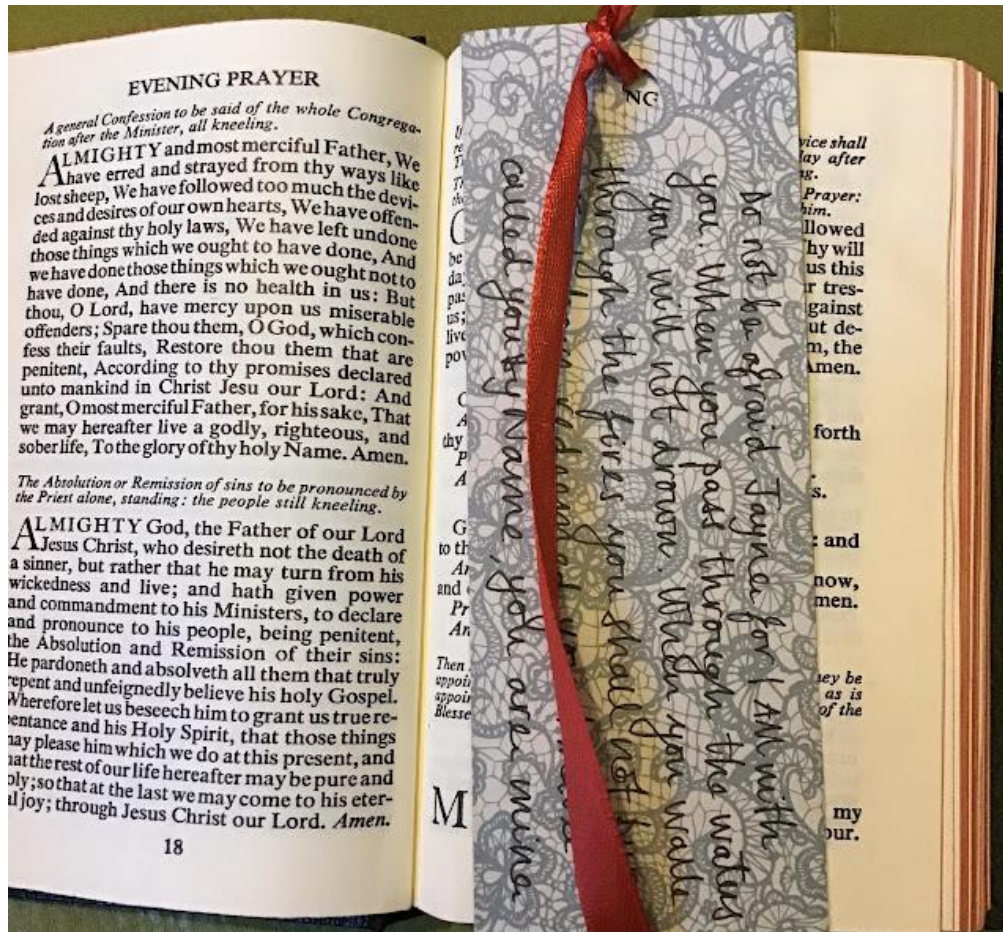 EVENING PRAYER
A general Confession to be said of the whole Congrega-
tion after the Minister, all kneeling.
ALMIGHTY and most merciful Father, We
have erred and strayed from thy ways like
lost sheep, We have followed too much the devi-
ces and desires of our own hearts, We have offen-
ded against thy holy laws, We have left undone
those things which we ought to have done, And
we have done those things which we ought not to
have done, And there is no health in us: But
thou, O Lord, have mercy upon us miserable
offenders; Spare thou them, O God, which con-
fess their faults, Restore thou them that are
penitent, According to thy promises declared
unto mankind in Christ Jesu our Lord: And
grant, O most merciful Father, for his sake, That
we may hereafter live a godly, righteous, and
sober life, To the glory of thy holy Name. Amen.
The Absolution or Remission of sins to be pronounced by
the Priest alone, standing: the people still kneeling.
ALMIGHTY God, the Father of our Lord
Jesus Christ, who desireth not the death of
a sinner, but rather that he may turn from his
wickedness and live; and hath given power
and commandment to his Ministers, to declare
and pronounce to his people, being penitent,
the Absolution and Remission of their sins:
He pardoneth and absolveth all them that truly
repent and unfeignedly believe his holy Gospel.
Wherefore let us beseech him to grant us true re-
pentance and his Holy Spirit, that those things
may please him which we do at this present, and
that the rest of our life hereafter may be pure and
holy; so that at the last we may come to his eter-
al joy; through Jesus Christ our Lord. Amen.
18
NG
Do not be afraid Jayne for I AM with
you. When you pass through the waters
you will not drown. When you walk
through the fires you shall not
redeemed
called you by Name, you are mine
vice shall
ay after
Prayer:
him.
llowed
hy will
us this
r tres-
gainst
ut de-
m, the
Amen.
forth
s.
: and
now,
men.
ey be
as is
of the
my
our.
thy
to th
and
Then
appoi
appoin
Blesse
M